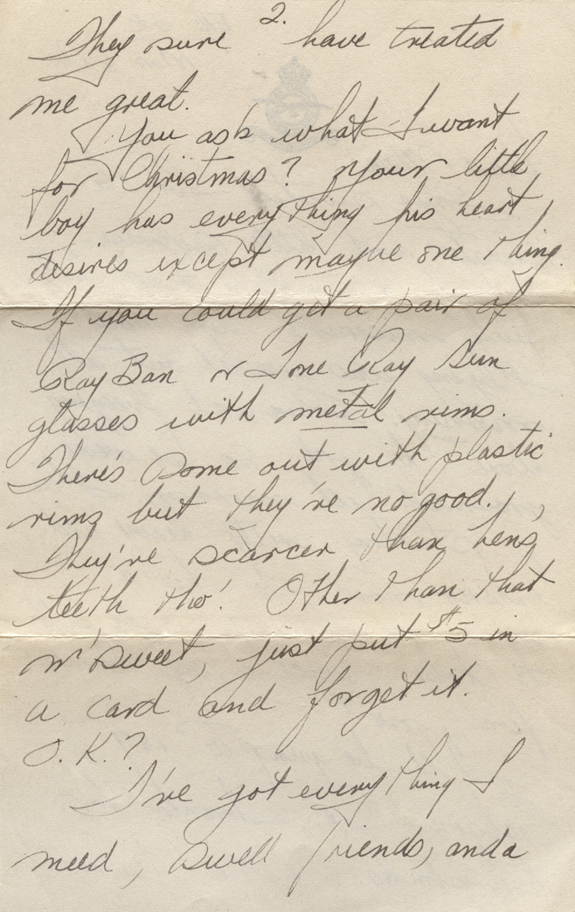 2.
They sure have treated
me great.
You ask what I want
for Christmas? Your little
boy has everything his heart
desires except maybe one thing.
If you could get a pair of
Ray Ban or Tone Ray Sun
glasses with metal rims.
There's some out with plastic
rims but they're no good.
They're scarcer than hen's
teeth tho'. Other than that
m'sweet, just put $5 in
a card and forget it.
O.K.?
I've got everything I
need, swell friends, and a